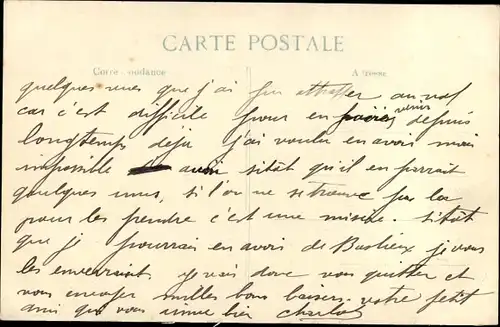 CARTE POSTALE
Correspondance Adresse
quelques unes que j'ai pu attraper au vol
car c'est difficile pour en avoir depuis
longtemps déja j'ai voulu en avoir mais
impossible avoir sitôt qu'il en parrait
quelques unes, si l'on ne se trouve pas la
pour les prendre c'est une misère. sitôt
que je pourrai en avoir de Baslieux je vous
les enverrai. je vais donc vous quitter et
vous envoyer milles bons baisers. votre petit
ami qui vous aime bien Charlot